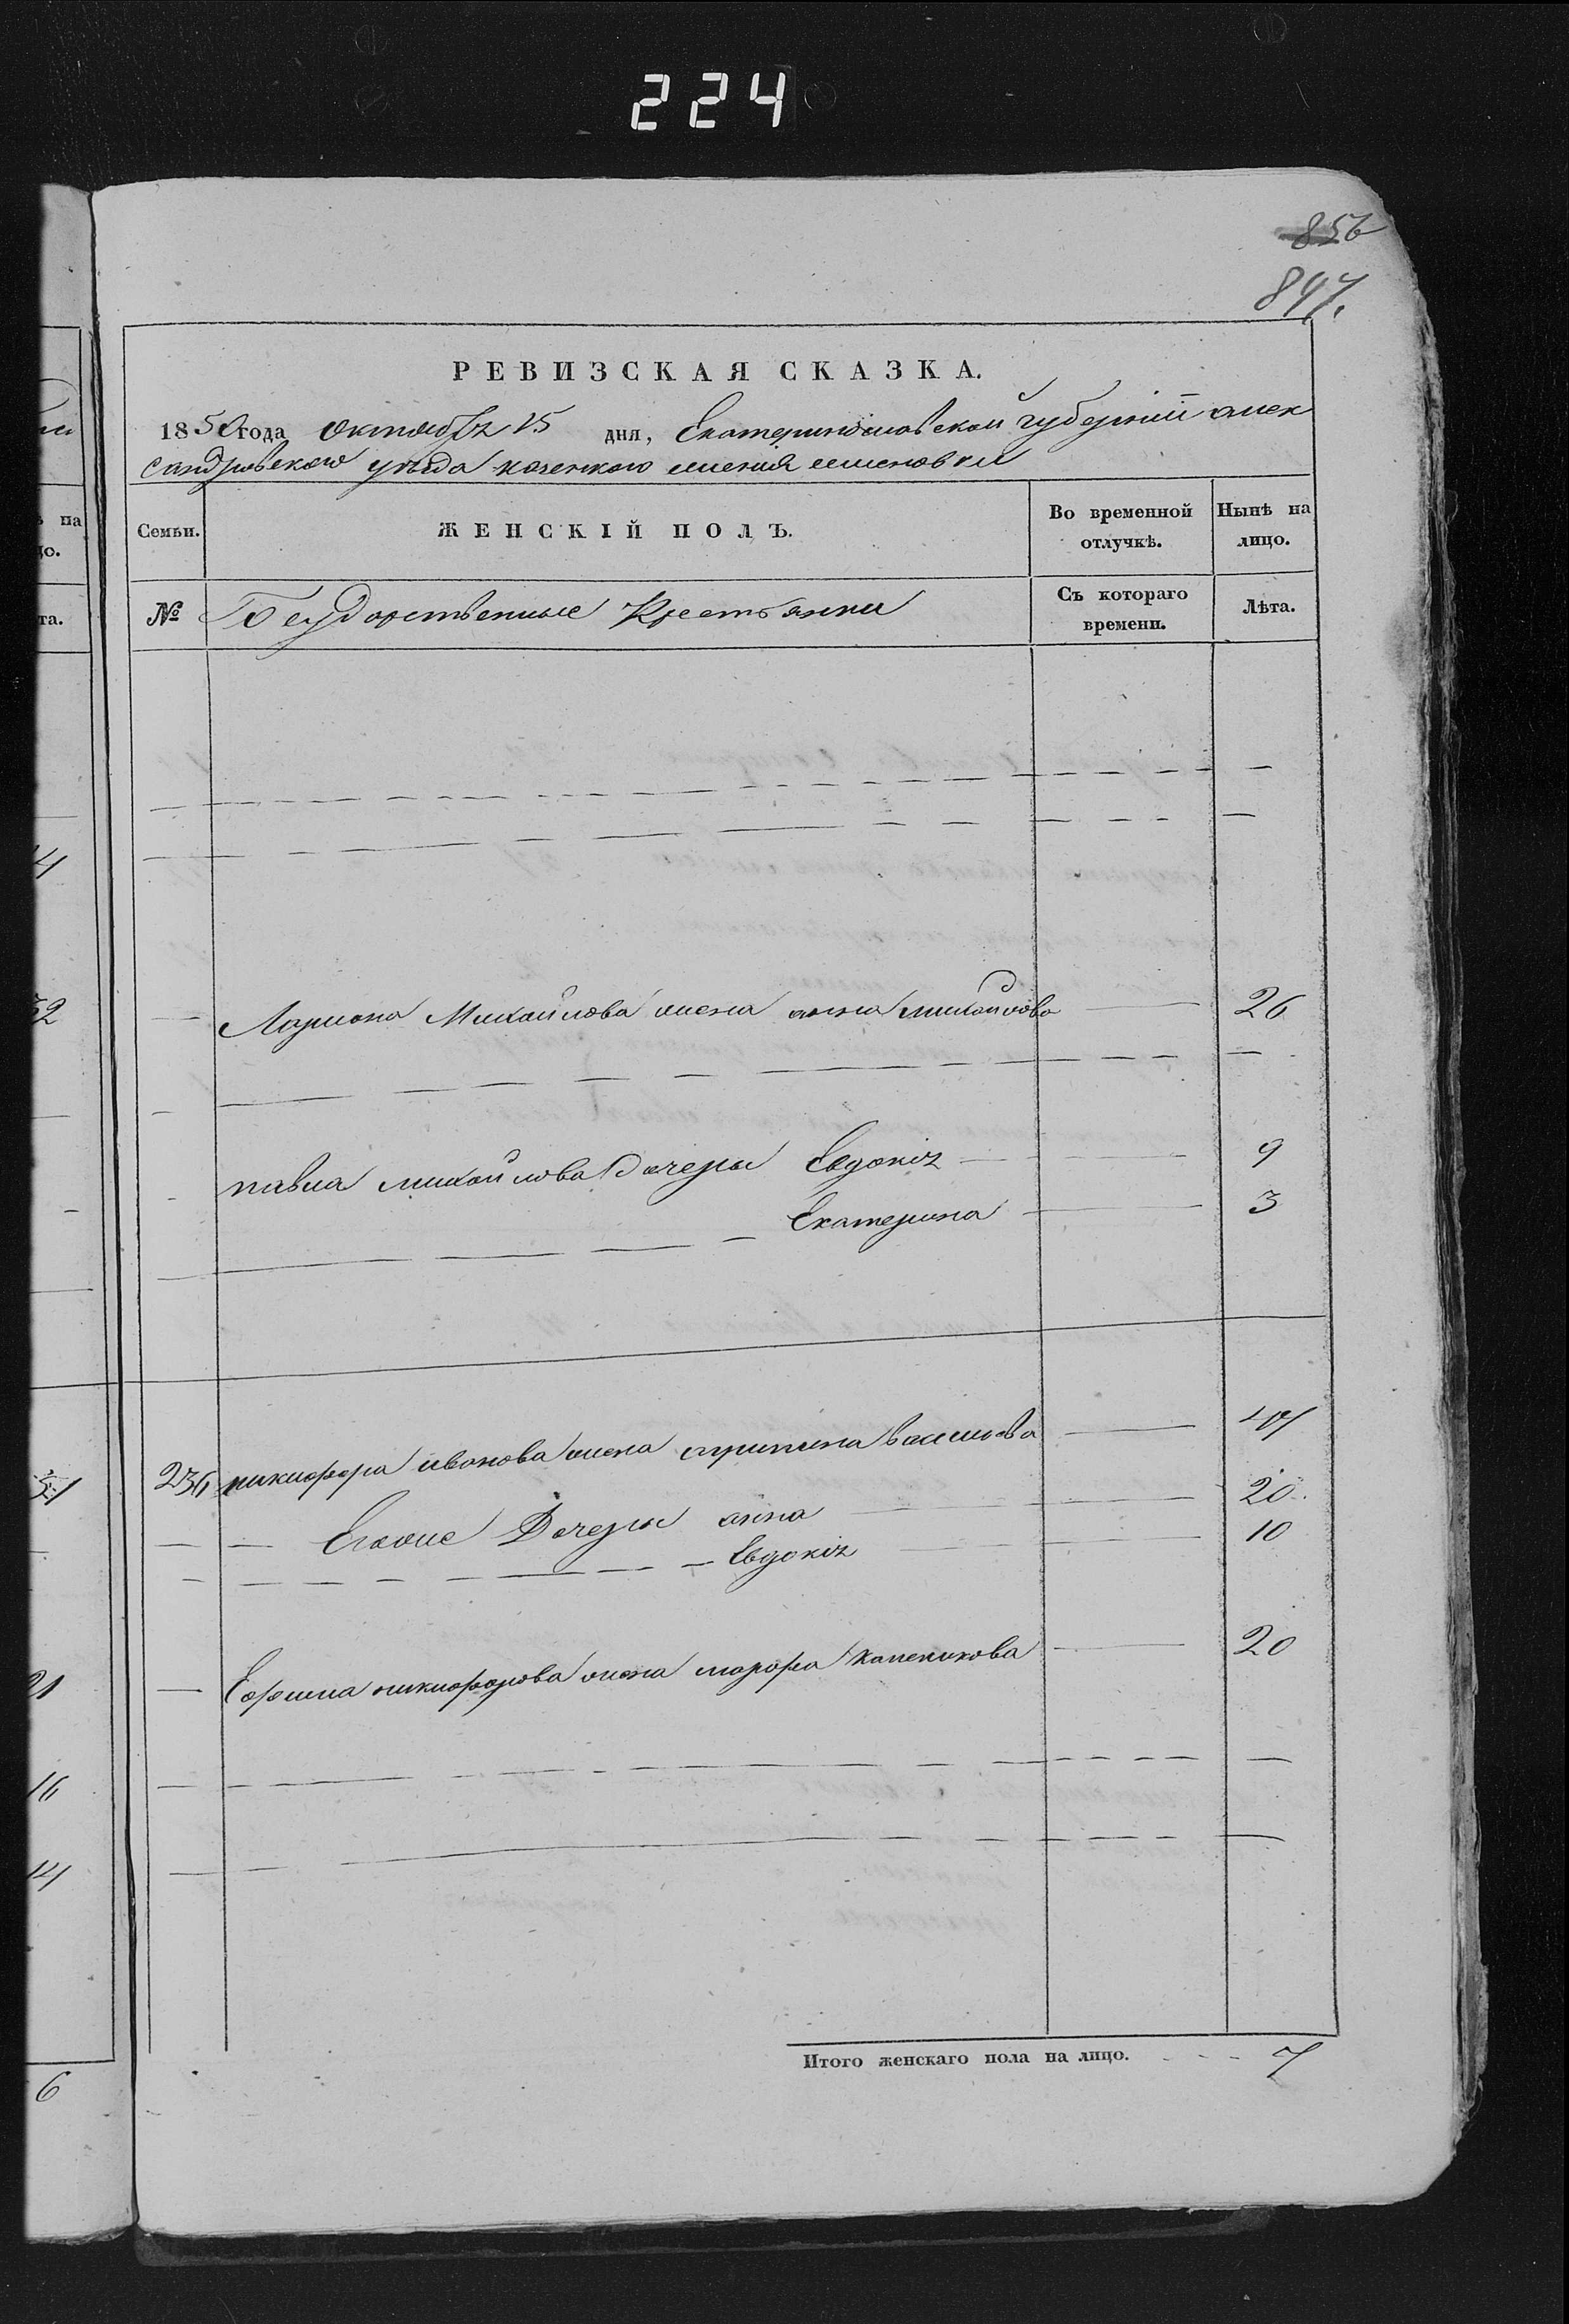 224
856
847.
РЕВИЗСКАЯ СКАЗКА.
1850 года октября 15 дня, Екатеринославской губернии алек
сандровскаго уезда казенного имения семеновки
на
Семьи.
ЖЕНСКІЙ ПОЛЪ.
Во временной отлучкѣ.
Нынѣ на лицо.
№
Государственные Крестьянки
Съ котораго времени.
Лѣта.
Лариона Михайлова жена анна михайлова 26
павла михайлова дочери Евдокія 9
Екатерина 3
236 никифора иванова жена агрипина васильева 47
Еговые Дочери анна 20
Евдокія 10
Ефима никифорова жена марфа 20
Итого женскаго пола на лицо. 7
32
51
21
16
14
6